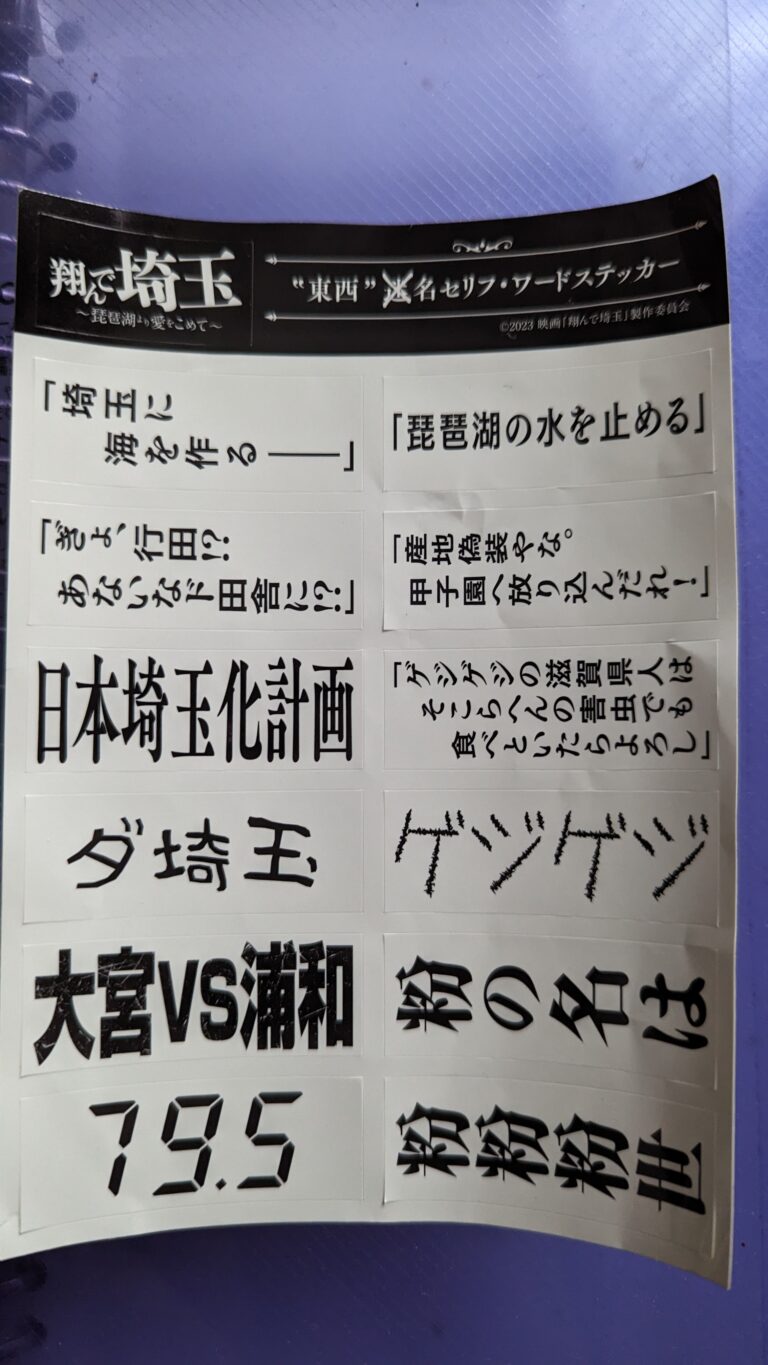 翔んで埼玉
～琵琶湖より愛をこめて～
“東西”迷名セリフ・ワードステッカー
©2023 映画「翔んで埼玉」製作委員会
「埼玉に
海を作る――」
「琵琶湖の水を止める」
「ぎょ、行田!?
あないなド田舎に!?」
「産地偽装やな。
甲子園へ放り込んだれ！」
日本埼玉化計画
「ゲジゲジの滋賀県人は
そこらへんの害虫でも
食べといたらよろし」
ダ埼玉
ゲジゲジ
大宮VS浦和
粉の名は
79.5
粉粉粉世